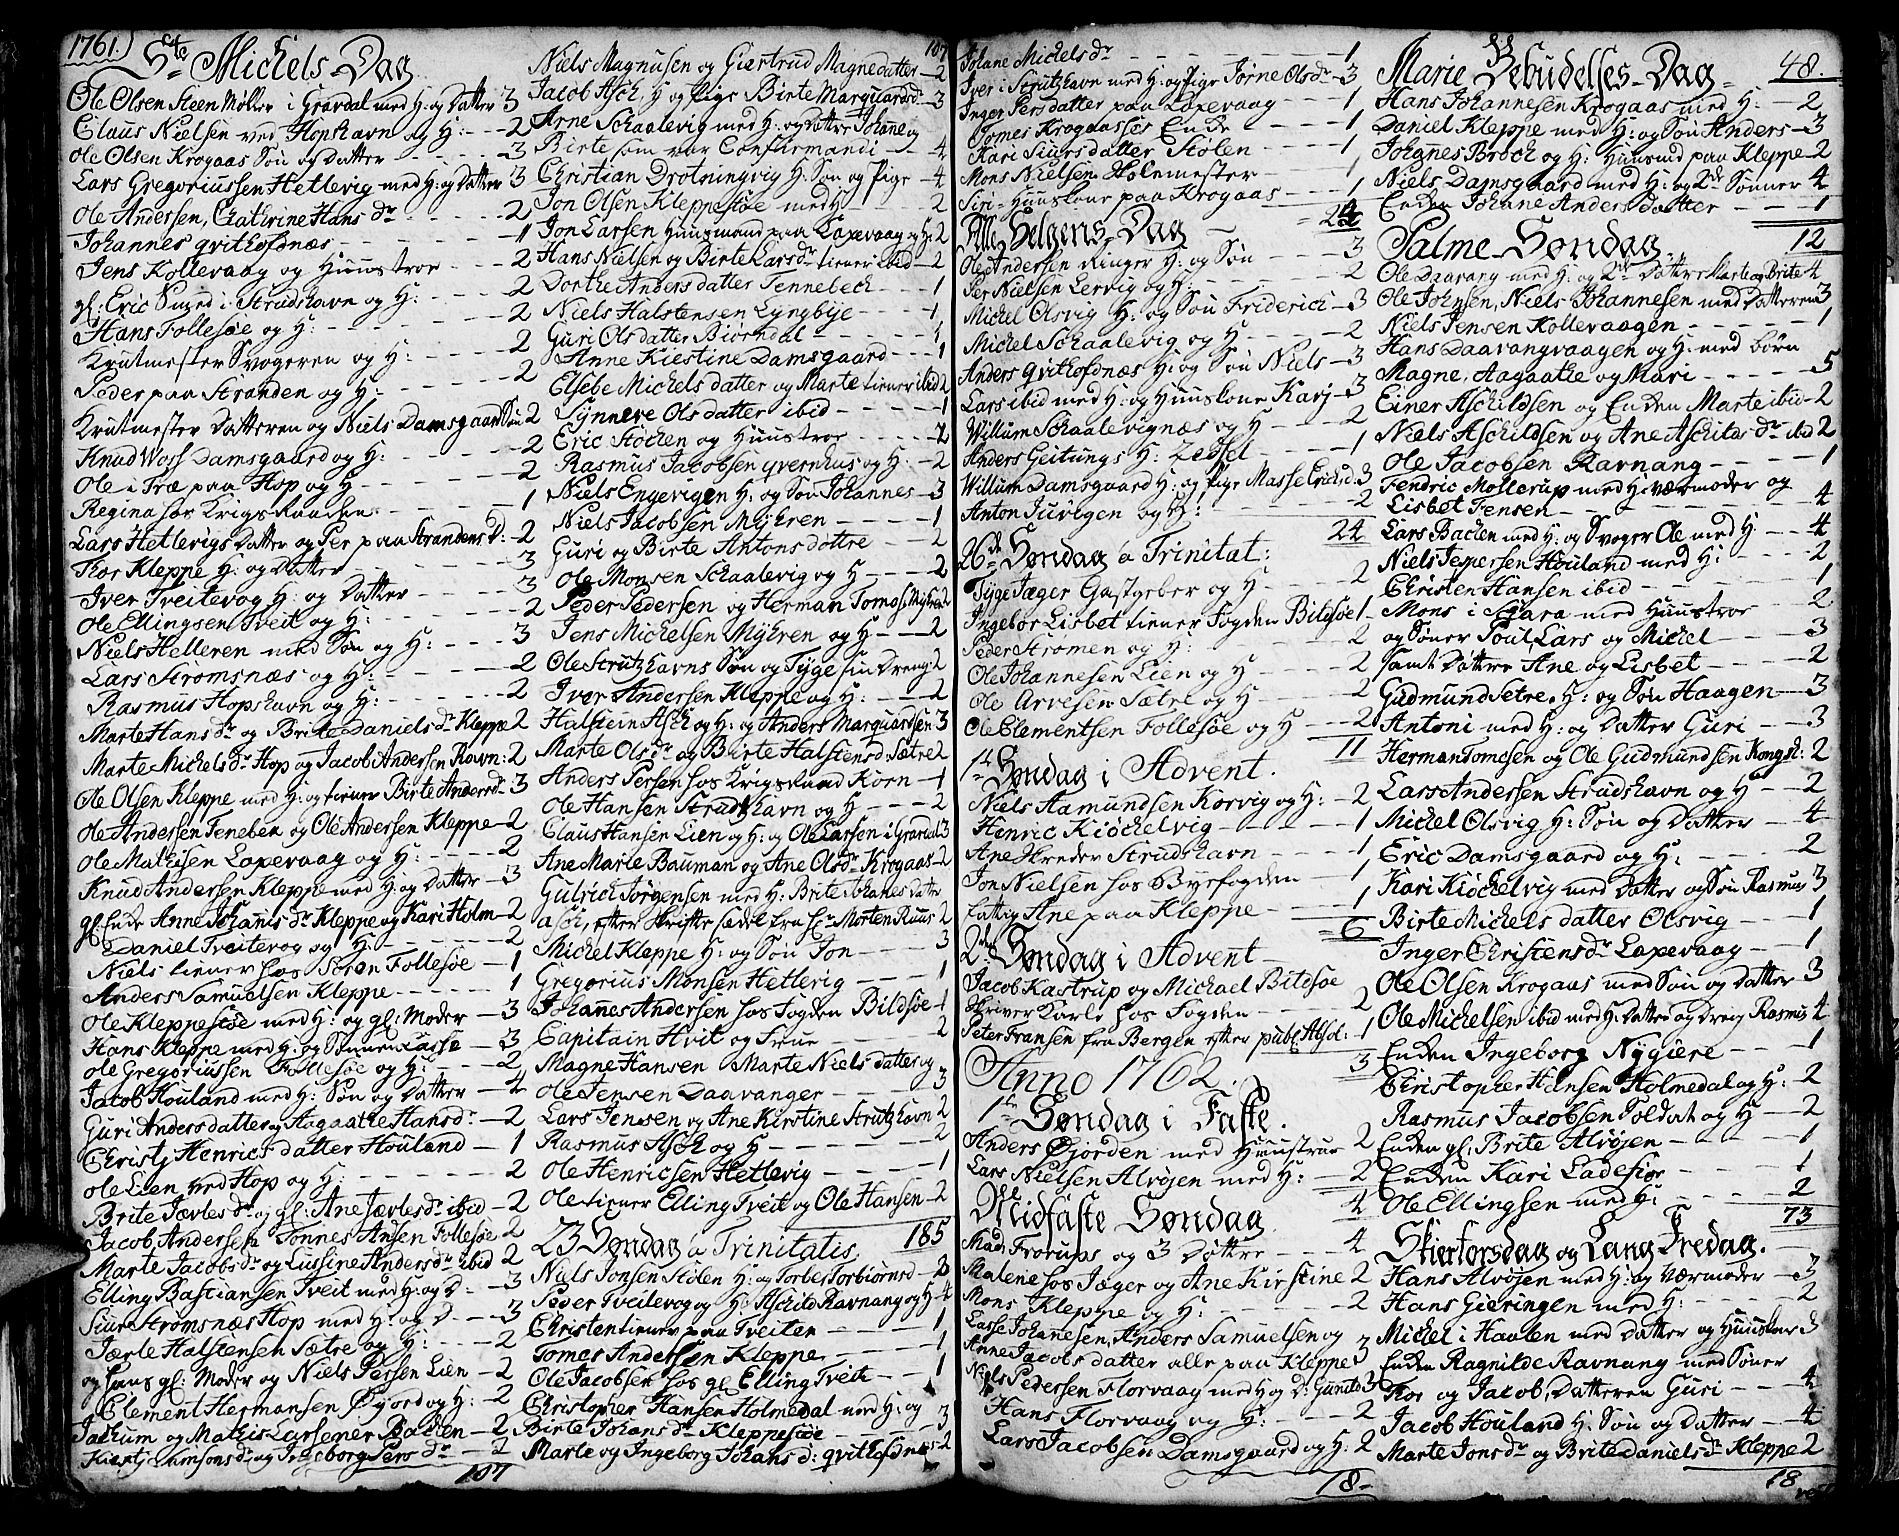 1761.)
Ste Michels Dag
Ole Olsen Steen Møller i Gravdal med H: og Datter 3
Claus Nielsen ved Hopshavn og H: - - 2
Ole Olsen Krogaas Søn og Datter - - - 3
Lars Gregoriussen Hetlevig med H: og Datter 3
Ole Andersen, Cathrine Hans dr - - - 2
Johannes qvithofdnæs - - - 1
Jens Kollevaag og Huustroe - - 2
gl: Eric Smed i Strudshavn og H: - - 2
Hans Follesøe og H: - - - 2
Krutmester Svogeren og H: - - - 2
Peder paa Stranden og H: - - - 2
Krutmester Datteren og Niels Damsgaard Søn 2
Knud Woss Damsgaard og H: - - 2
Ole i Træ paa Hop og H - - - 2
Regina hos Krigsraaden - - - 1
Lars Hetlevigs Datter og Per paa Strandens D: - 2
Thor Kleppe H: og Datter - - - 3
Iver Tveitevog H: og Datter - - - 3
Ole Ellingsen Tveit og H: - - - 2
Niels Helleren med Søn og H: - - 3
Lars Strømsnæs og H: - - - 2
Rasmus Hopshavn og H: - - - 2
Marte Hans dr og Brite Daniels dr Kleppe 2
Marte Michels dr Hop og Jacob Andersen Ravn: 2
Ole Olsen Kleppe med H: og tiener Birte Andersdr - 3
Ole Andersen Teneben og Ole Andersen Kleppe - 2
Ole Mathisen Loxevaag og H: - - - 2
Knud Andersen Kleppe med H: og Datter - 3
gl: Enke Anne Johanis dr Kleppe og Kari Holm - 2
Daniel Tveitevog og H: - - - 2
Niels tiener hos Søren Follesøe - 1
Anders Samuelsen Kleppe - - - 1
Ole Kleppestøe med H: og gl: Moder - 3
Hans Kleppe med H: og Sønnen Lasse - 3
Ole Gregoriussen Follesøe og H: - - 2
Jacob Houland med H: Søn og Datter - 4
Guri Andersdatter og Aagaathe Hansdr - 2
Christj Henrics datter Houland - 1
Ole Lien ved Hop og H: - - - 2
Brite Jærles dr og gl: Ane Jærles dr ibid - 2
Jacob Andersen Tønnes Ansen Follesøe 2
Marte Jacobs dr og Lussine Anders dr ibid 2
Elling Bastiansen Tveit med H: og D - 3
Siur Strømsnæs Hop med H: og D - 3
Jærle Halstensen Sætre og H: - - 2
og hans gl: Moder og Niels Persen Lien - 2
Clement Hermansen Øyjord og H: - 2
Jachum og Mathis Larsener Backen - 2
og Ingeborg Pers dr - - 2
107
107
Niels Magnusen og Giertrud Magnedatter - 2
Jacob Asch, H og pige Birte Marquardsd: - 3
Arne Schaalevig med H: og datter Johane og
Birte som var Confirmandi - - 4
Christian Drotningvig H: Søn og Pige - 4
Jon Olsen Kleppestøe med H - - 2
Jon Larsen Huusmand paa Loxevaag og H: 2
Hans Nielsen og Birte Larsdr tiener ibid - 2
Dorthe Anders datter Tennebech - - 1
Niels Halstensen Lyngbøe - - 1
Guri Ols datter Biørndal - - 1
Anne Kiestine Damsgaard - - 1
Elsebe Michels datter og Marte tiener ibid 2
Synneve Ols datter ibid - - - 1
Eric Støchen og Huustroe - - - 2
Rasmus Jacobsen qvernhus og H: - 2
Niels Engevigen H: og Søn Johannes - 3
Niels Jacobsen Myhren - - - 1
Guri og Birte Antons døttre - - 2
Ole Monsen Schaalevig og H - - 2
Peder Pedersen og Herman Tomas: Myhren 2
Jens Michelsen Myhren og H - - 2
Ole Strutzhavns Søn og Tyge sin Dreng 2
Iver Andersen Kleppe og H: - - 2
Halstein Asch og H: og Anders Marquardsen 3
Marte Ols dr og Birte Halstensd: Sætre 2
Anders Persen hos Krigsraad Korn - 1
Ole Hansen Strudshavn og H - - 2
Claus Hansen Lien og H: og Ole Larsen i Gravdal 3
Ane Marie Bauman og Ane Ols dr Krogaas 2
Gulrich Jørgensen med H: Birte Johanes dater
Asch, efter Skrifte sædel fra Hr Morten Ruus 2
Michel Kleppe H: og Søn Jon - - 3
Gregorius Monsen Hetlevig - - 1
Johanes Andersen hos Fogden Bildsøe - 1
Capitain Hvit og Frue - - - 2
Magne Hansen Marte Niels datter og
Ole Jensen Daavanger - - - 3
Lars Jensen og Ane Kirstine Strutzhavn 2
Rasmus Asch og H - - - 2
Ole Henricsen Hetlevig - - - 1
Ole tiener Elling Tveit og Ole Hansen - 2
23 Søndag a Trinitatis. 185
Niels Jonsen Stølen H: og Torbes Torbiørnsd - 3
Peder Tveitevog og H: Aschild Ravnang og H - 4
Christen tiener paa Tveiten - - 1
Tomas Andersen Kleppe - - - 1
Ole Jacobsen hos gl Elling Tveit - 1
Christopher Hansen Holmedal med H: og
Birte Johans dr Kleppestøe - - - 3
Marte og Ingeborg Johans d: qvithofdnæs 2
Jolane Michels dr - - - 1
Iver i Strutzhavn med H: og pige Jørne Ols dr - 3
Inger Persdatter paa Loxevaag - - 1
Tomes Krogaasses Enke - - - 1
Kari Siursdatter Stølen - - - 1
Mons Nielsen Holemester - - - 1
Siri Huuskone paa Krogaas - - 1
Alle Helgens Dag - 24
Ole Andersen Ringer H: og Søn - - 3
Per Nielsen Lervig og H: - - - 2
Michel Olsvig H: og Søn Friderich - 3
Michel Schaalevig og H - - - 2
Anders qvithofdnæs H: og Søn Niels - 3
Lars ibid med H: og Huuskone Karj - 3
Willum Schaalevignæs og H - - 2
Anders Geitungs H: Zedsel - - 1
Willum Damsgaard H: og pige Masse Erichsd: 3
Anton Juvigen og H: - - - 2
24
26de Søndag a Trinitat:
Tyge Jæger Gastgeber og H - - 2
Ingebor Lisbet tiener Fogden Bildsøe 1
Peder Strømen og H: - - - 2
Ole Johannesen Lien og H - - 2
Ole Arvesen Sætre og H - - - 2
Ole Clementsen Follesøe og H - - 2
1te Søndag i Advent. 11
Niels Aamundsen Korvig og H: - 2
Henric Kiøchelvig - - - 1
Ane Skreder Strudshavn - - 1
Jon Nielsen hos Byefogden - - 1
fattig Ane paa Kleppe - - - 1
6
2den Søndag i Advent -
Jacob Kastrup og Michael Bildsøe
Skriver Karle hos Fogden - - 2
Peter Fransen fra Bergen efter publ: Absol: - 1
Anno 1762. 3
1te Søndag i Faste.
Anders Øjorden med Huustrue 2
Lars Nielsen Alvøjen med H: - 2
Midfaste Søndag. 4
Mad. Frorups og 3 Døttre - - 4
Malene hos Jæger og Ane Kirstine 2
Mons Kleppe og H: - - - 2
Lasse Johannesen, Anders Samuelsen og
Anne Jacobs datter alle paa Kleppe 3
Niels Pedersen Florvaag med H og D: Gunild 3
Hans Florvaag og H: - - - 2
Lars Jacobsen Damsgaard og H: 2
18 -
48.
Marie Bebudelses-Dag -
Hans Johannesen Krogaas med H: - 2
Daniel Kleppe med H: og Søn Anders - 3
Johannes Broch og H: Huusmd paa Kleppe - 2
Niels Damsgaard med H: og 2de Sønner 4
Enken Johane Anders datter - - 1
Palme-Søndag. 12
Ole Daavang med H: og 2de Døttre Marte og Brite 4
Ole Johnsen, Niels Johannesen med Datteren 3
Niels Jensen Kollevaagen - - - 1
Hans Daavangvaagen og H: med børn
Magne, Aagaathe og Mari - - - 5
Einer Aschildsen og Enken Marte ibid - 2
Niels Aschildsen og Ane Aschilds dr ibid 2
Ole Jacobsen Ravnang - - - 1
Fendric Mollerup med H: Værmoder og
Lisbet Jensen - - - 4
Lars Backen med H: og Svoger Ole med H - 4
Niels Jespersen Houland med H: - 2
Christen Hansen ibid - - - 1
Mons i Skara med Huustroe - 2
og Søner Poul, Lars og Michel - - 3
samt Døttre Ane og Lisbet - - - 2
Gudmund Setre, H: og Søn Haagen - 3
Antoni med H: og Datter Guri - - 3
Herman Tomesen og Ole Gudmundsen Kongsd: 2
Lars Andersen Strudshavn og H - - 2
Michel Olsvig H: Søn og Datter - - 4
Eric Damsgaard og H: - - - 2
Kari Kiøchelvig med Datter og Søn Rasmus 3
Birte Michels datter Olsvig - - 1
Inger Christens dr Loxevaag - - 1
Ole Olsen Krogaas med Søn og Datter 3
Ole Michelsen ibid med H: Datter og dreng Rasmus 4
Enken Ingeborg Nygiere - - - 1
Christopher Hansen Holmedal og H: 2
Rasmus Jacobsen Soldat og H - 2
Enken gl: Brite Alvøjen - - - 1
Enken Kari Ladefior - - - 1
Ole Ellingsen med H: - - - 2
73
Skiertorsdag og Lang Fredag.
Hans Alvøjen med H: og Værmoder - 3
Hans Gieringen med H: - - - 2
Michel i Haalen med Datter og Huuskone 3
Enken Ragnilde Ravnang med Søner
Thor og Jacob, Datteren Guri - - 4
Jacob Houland H: Søn og Datter - - 4
Marte Jons dr og Brite Daniels dr Kleppe 2
18